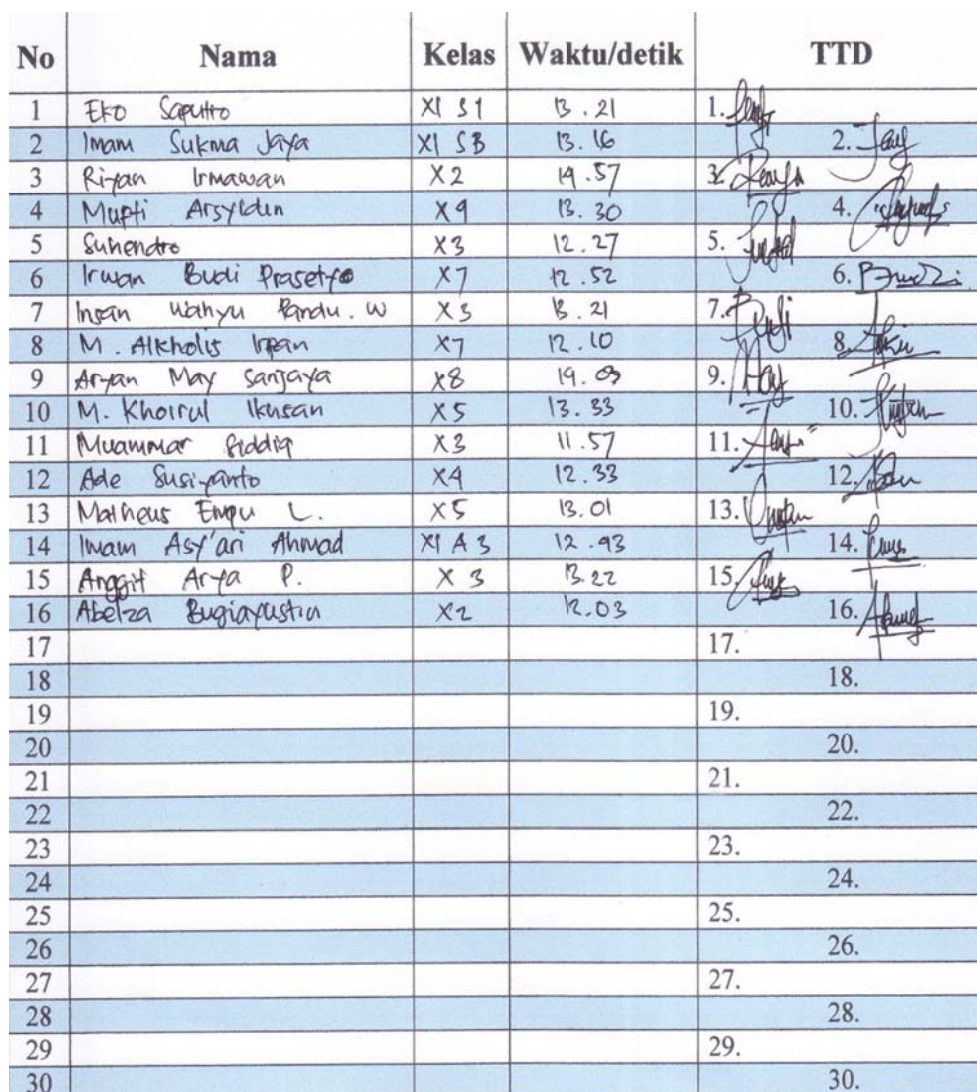 No Nama Kelas Waktu/detik TTD
1 Eko Saputro XI S1 13.21 1.
2 Imam Sukma Jaya XI S3 13.16 2.
3 Riyan Irmawan X2 14.57 3.
4 Mufti Arsyidin X4 13.30 4.
5 Suhendro X3 12.27 5.
6 Irwan Budi Prasetyo X7 12.52 6.
7 Insan Wahyu Pandu. W X3 13.21 7.
8 M. Alkholis Irpan X7 12.10 8.
9 Aryan May Sanjaya X8 14.03 9.
10 M. Khoirul Ikhsan X5 13.33 10.
11 Muammar Siddiq X3 11.57 11.
12 Ade Susiyanto X4 12.33 12.
13 Matheus Empu L. X5 13.01 13.
14 Imam Asy'ari Ahmad XI A3 12.43 14.
15 Anggit Arya P. X 3 13.22 15.
16 Abelza X2 12.03 16.
17 17.
18 18.
19 19.
20 20.
21 21.
22 22.
23 23.
24 24.
25 25.
26 26.
27 27.
28 28.
29 29.
30 30.